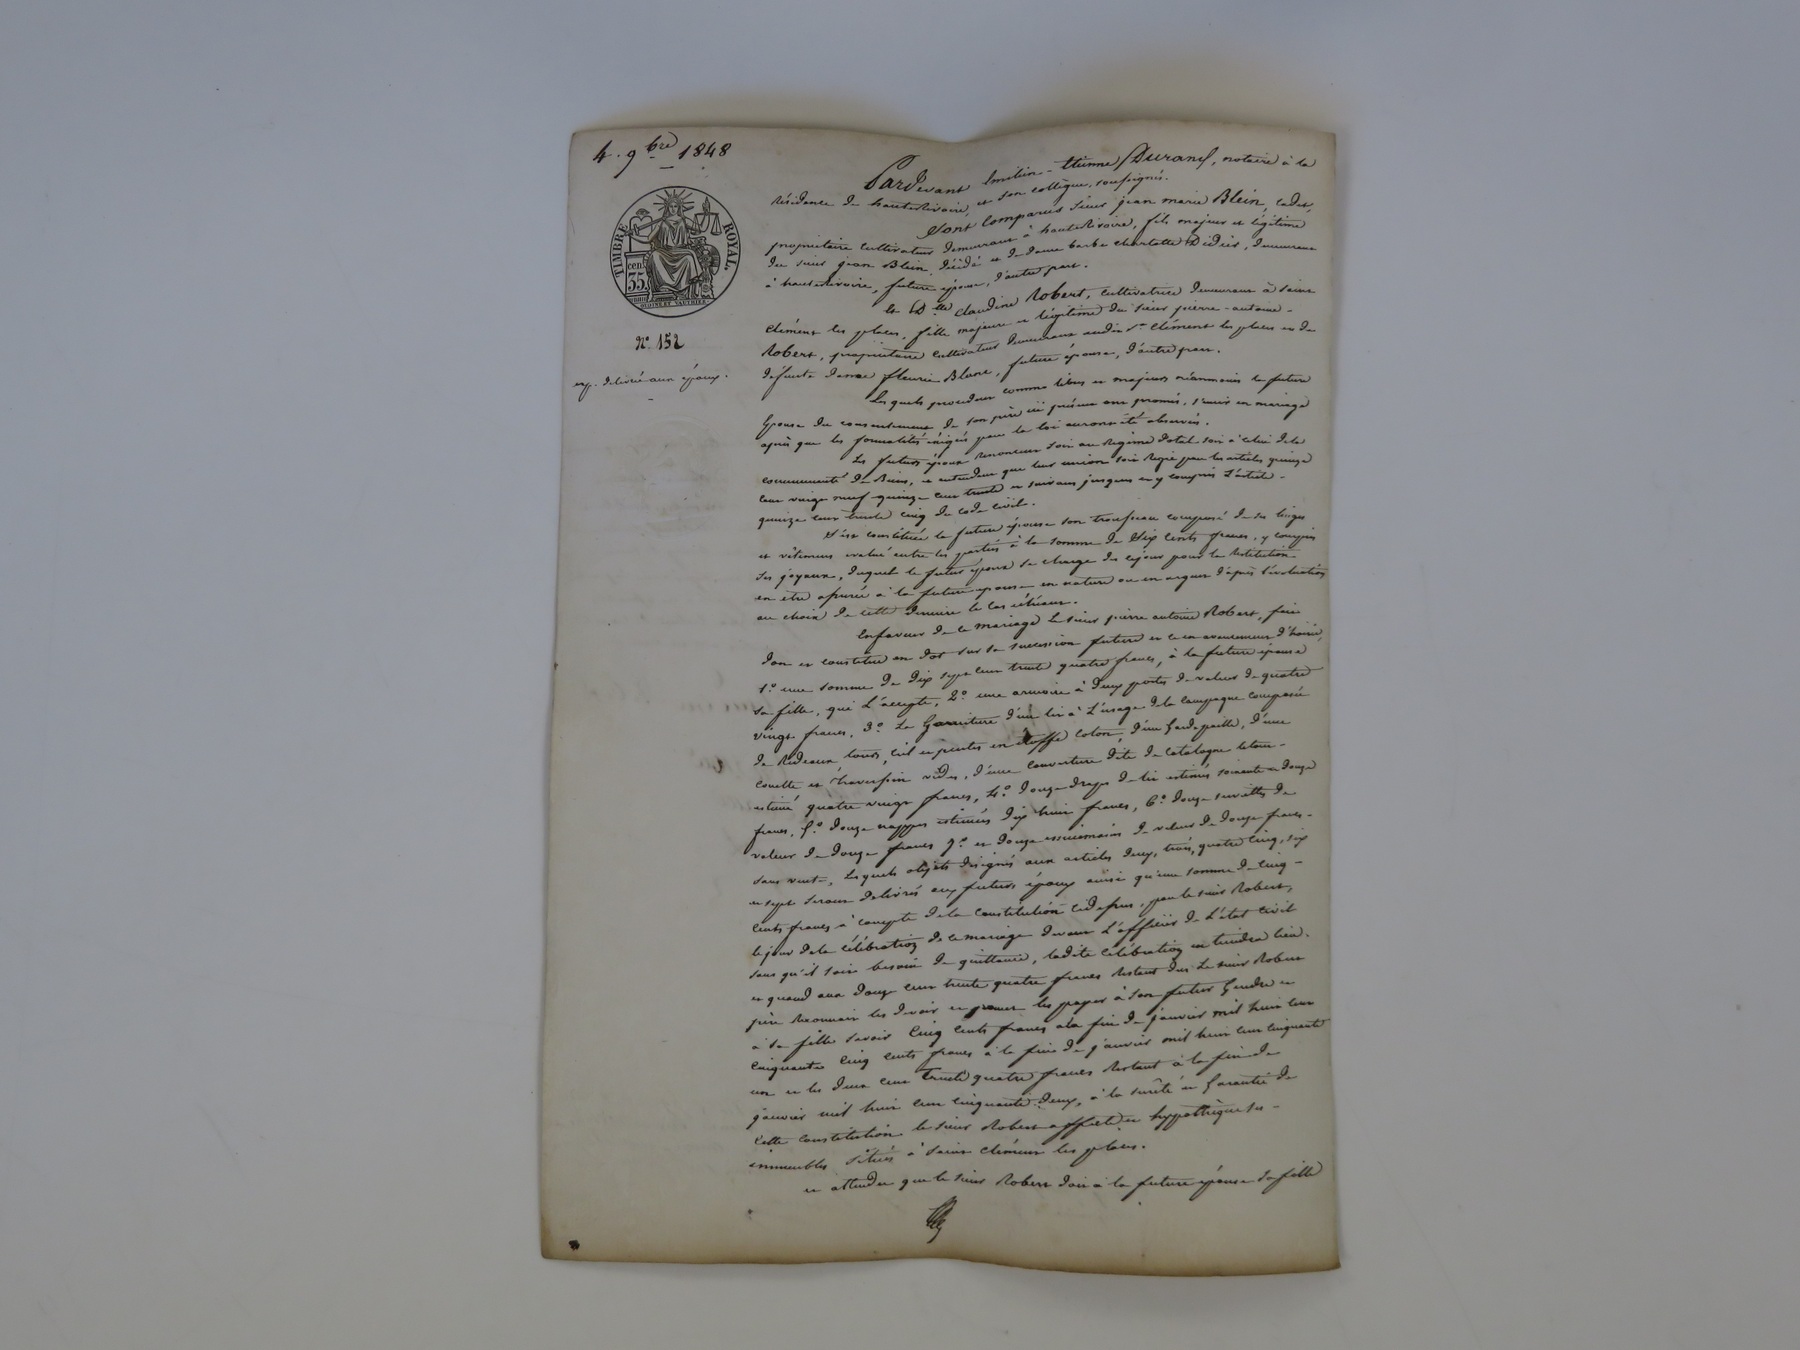 4. 9bre 1848
TIMBRE ROYAL.
cen.
35
No. 152
exp. délivrée aux époux.
Pardevant Emilien-Etienne Durand, notaire à la
Résidence de hauterivoire, et son collègue, soussignés.
Sont Comparus sieur jean marie Blein, cadet,
propriétaire cultivateur demeurant à hauterivoire, fils majeur et légitime
du sieur jean Blein, décédé et de dame barbe charlotte Didier, demeurant
à hauterivoire, futur époux, d'autre part.
et Dlle claudine Robert, cultivatrice demeurant à saint
Clément les places, fille majeure et légitime du sieur pierre-antoine-
Robert, propriétaire cultivateur demeurant audit st Clément les places et de
défunte dame fleurie Blanc, future épouse, d'autre part.
Les quels procédant comme libres et majeurs néanmoins la future
Epouse du consentement de son père ici présent ont promis, s'unir en mariage
après que les formalités éxigées par la loi auront été observées.
Les futurs époux Renoncent soit au Régime Dotal soit à celui de la
communauté de Biens, et entendent que leur union soit Régie par les articles quinze
cent vingt neuf quinze cent trente et suivans jusques et y compris l'article
quinze cent trente cinq du code civil.
S'est constituée la future épouse son trousseau composé de ses linges
et vêtemens evalué entre les parties à la somme de Six cents francs, y compris
ses joyaux, duquel le futur époux se charge dès cejour pour la Restitution
en etre assurée à la future epouse en nature ou en argent d'après l'évaluation
au choix de cette dernière le cas échéant.
En faveur de ce mariage le sieur pierre antoine Robert, fait
don et constitue en dot sur sa succession future et en avancement d'hoirie,
1.o une somme de dix sept cent trente quatre francs, à la future épouse
sa fille, qui l'accepte, 2.o une armoire à deux portes de valeur de quatre
vingt francs, 3.o La Garniture d'un lit à l'usage de la campagne composée
de Rideaux tours, ciel et pentes en étoffe coton, d'un Garde paille, d'une
couette et traversin vides, d'une couverture dite de catalogne letout
estimé quatre vingt francs, 4.o douze draps de lit estimés soixante et douze
francs, 5.o douze nappes estimées dix huit francs, 6.o douze serviettes de
valeur de douze francs 7.o et douze essuiemains de valeur de douze francs
sans vente, Lesquels objets désignés aux articles deux, trois, quatre cinq, six
et sept seront délivrés aux futurs époux ainsi qu'une somme de cinq
cents francs à compte de la constitution cidessus, par le sieur Robert,
le jour de la célébration de ce mariage devant L'officier de L'état civil
sans qu'il soit besoin de quittance, ladite célébration en tiendra lieu.
et quand aux douze cent trente quatre francs Restant dus le sieur Robert
père Reconnait les devoir et promet les payer à son futur Gendre et
à sa fille savoir Cinq cents francs à la fin de janvier mil huit cent
cinquante cinq cents francs à la fin de janvier mil huit cent cinquante
un et les deux cent trente quatre francs Restant à la fin de
janvier mil huit cent cinquante deux, à la sureté et Garantie de
cette constitution le sieur Robert affecte et hypothèque ses
immeubles situés à saint clément les places.
et attendu que le sieur Robert doit à la future épouse sa fille